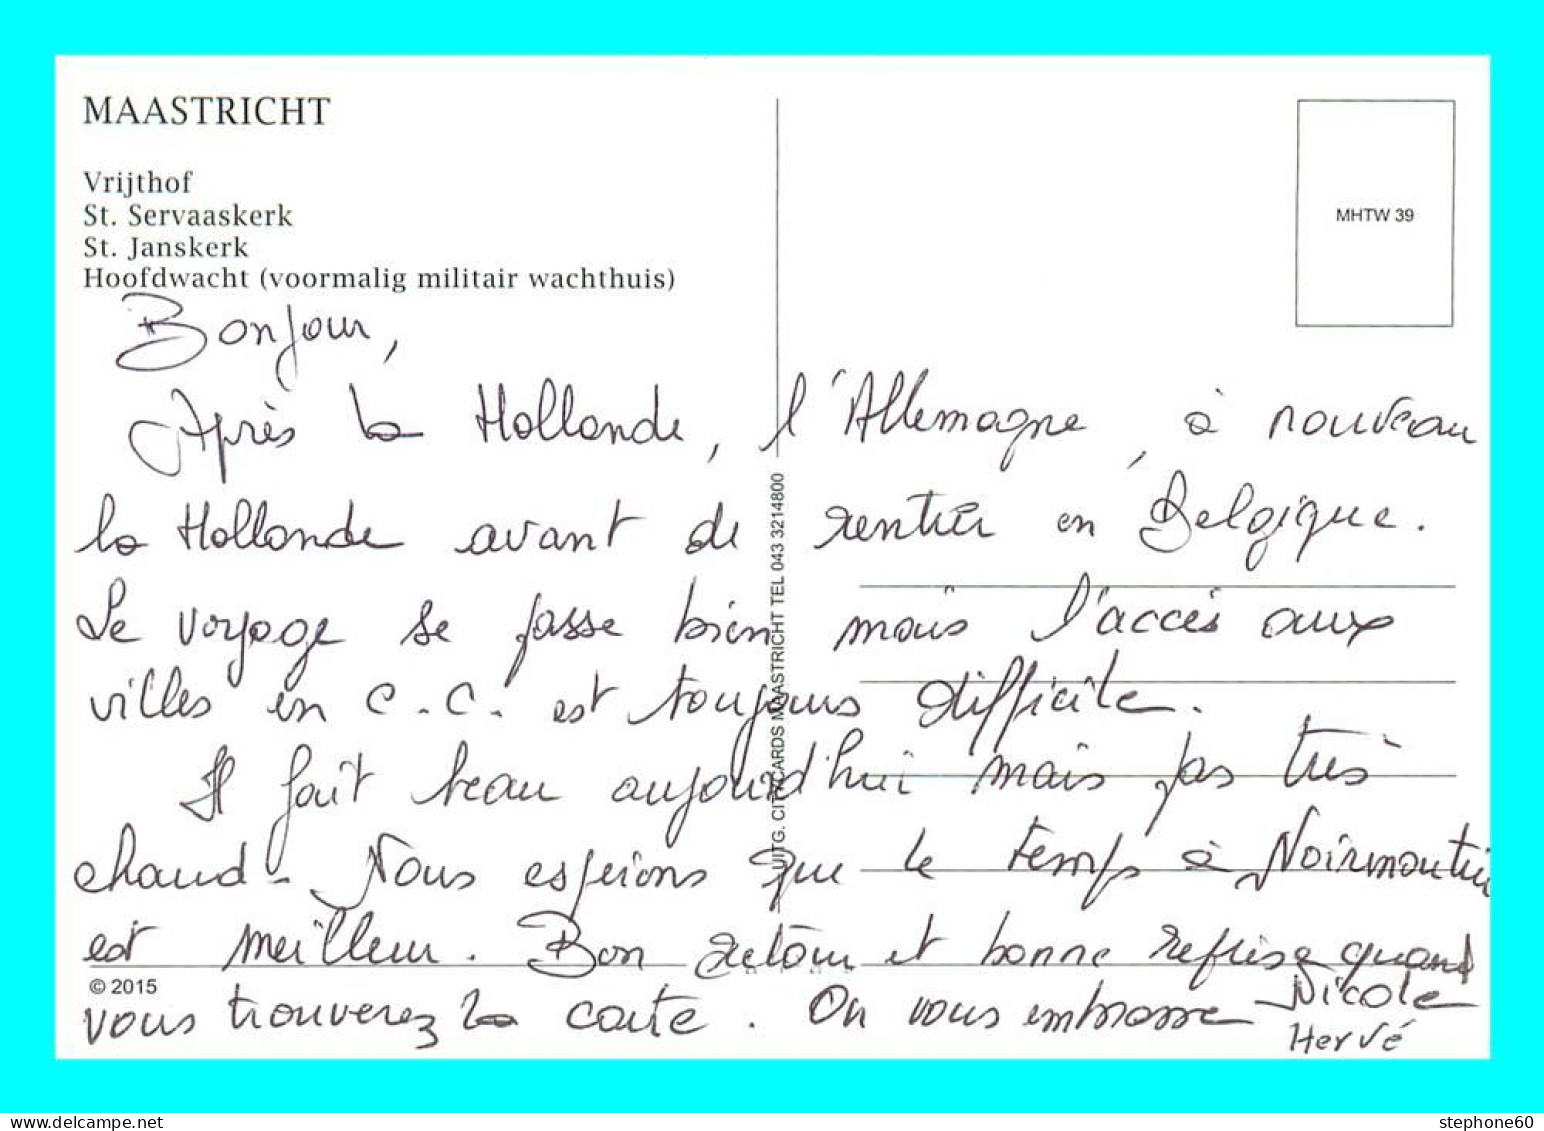 MAASTRICHT
Vrijthof
St. Servaaskerk
St. Janskerk
Hoofdwacht (voormalig militair wachthuis)
MHTW 39
Bonjour,
Après la Hollande, l'Allemagne, à nouveau
la Hollande avant de rentrer en Belgique.
Le voyage se passe bien mais l'accès aux
villes en C.C. est toujours difficile.
Il fait beau aujourd'hui mais pas très
chaud. Nous espérons que le temps à Noirmoutier
est meilleur. Bon retour et bonne reprise quand
vous trouverez la carte. On vous embrasse Nicole
Hervé
UITG. CITYCARDS MAASTRICHT TEL 043 3214800
© 2015
stephone60